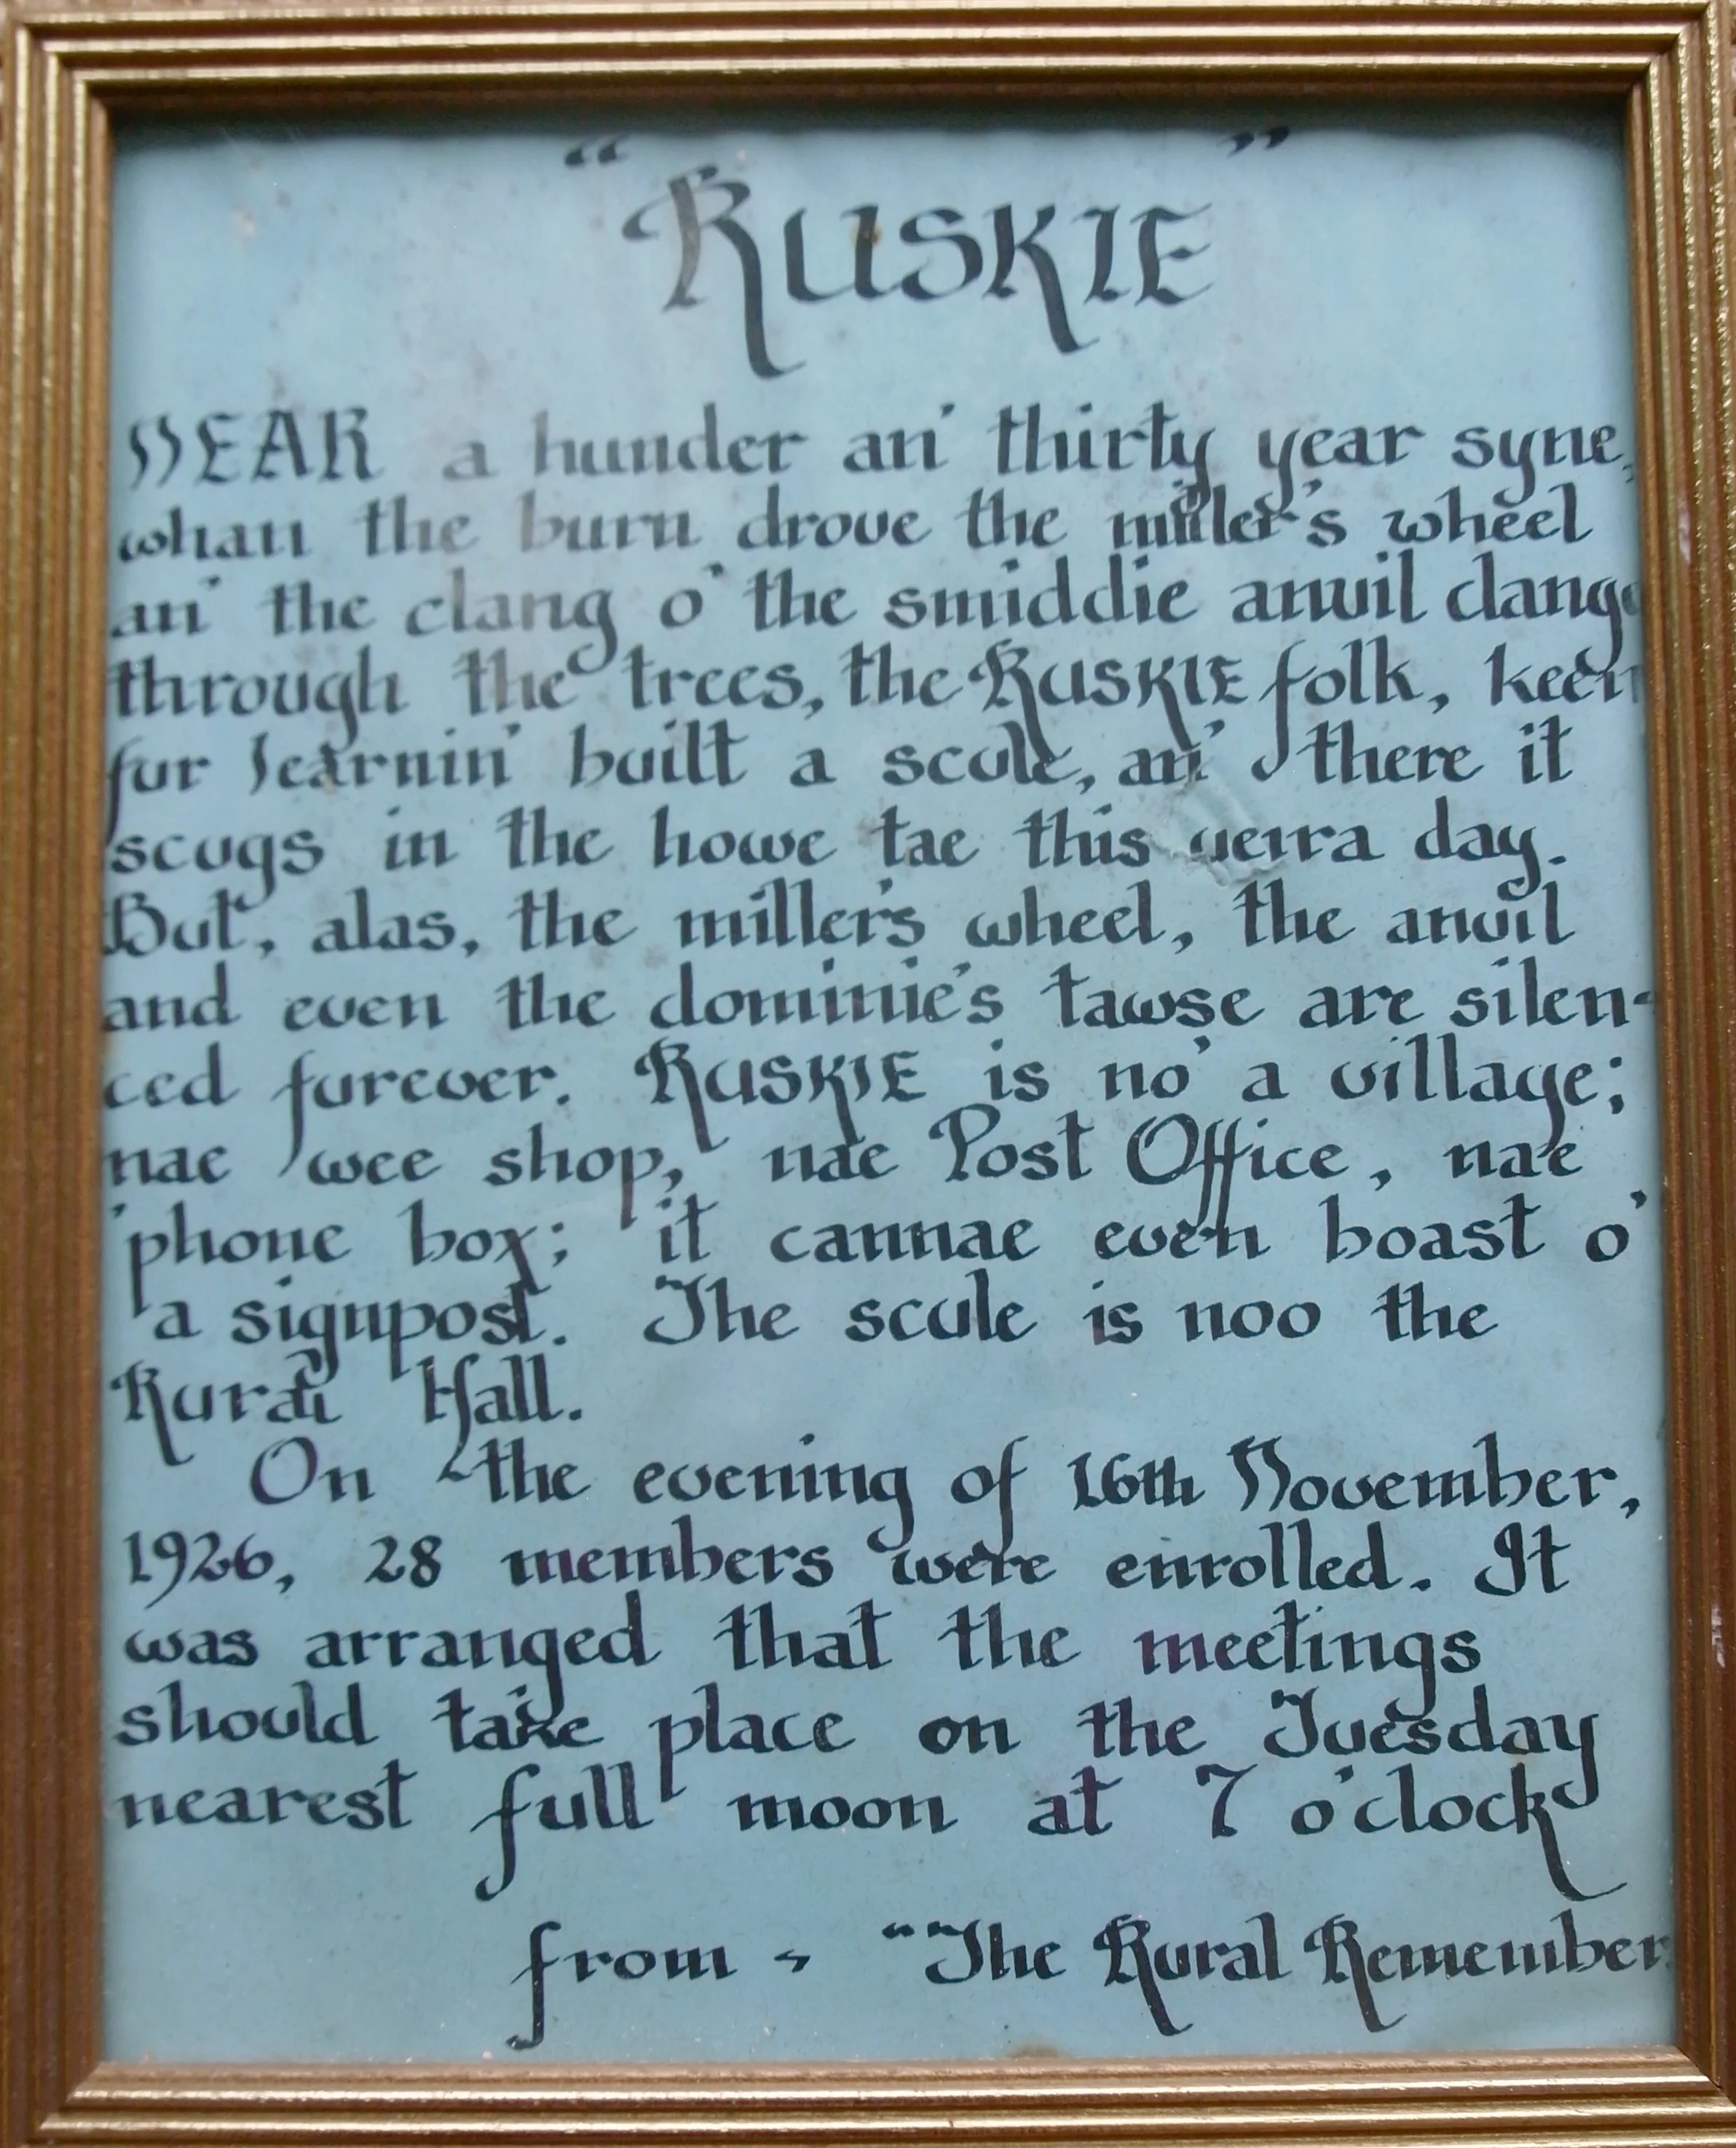 "RUSKIE"
NEAR a hunder an' thirty year syne,
whan the burn drove the miller's wheel
an' the clang o' the smiddie anvil dang
through the trees, the RUSKIE folk, keen
fur learnin' built a scule, an' there it
scugs in the howe tae this verra day.
But, alas, the miller's wheel, the anvil
and even the dominie's tawse are silen-
ced furever. RUSKIE is no' a village;
nae wee shop, nae Post Office, nae
'phone box; it cannae even boast o'
a signpost. The scule is noo the
Rural Hall.
On the evening of 16th November,
1926, 28 members were enrolled. It
was arranged that the meetings
should take place on the Tuesday
nearest full moon at 7 o'clock
from - "The Rural Remember